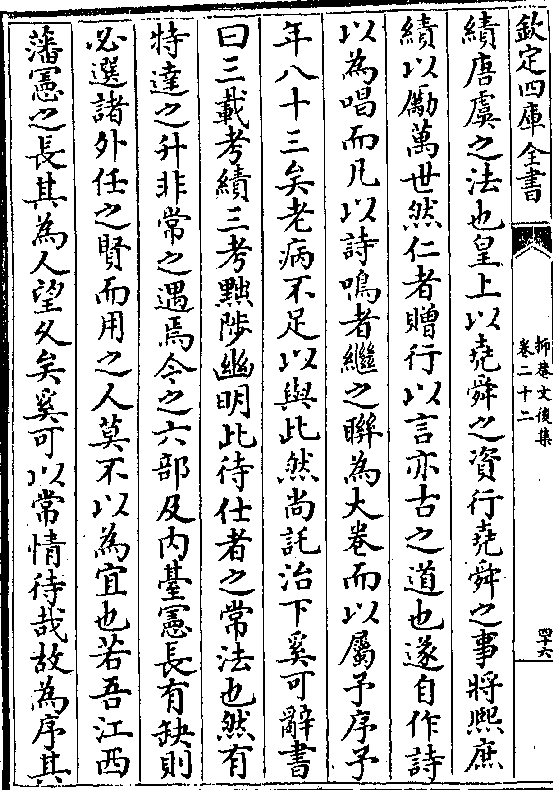 欽定四庫全書
抑菴文後集
卷二十二
四十六
績唐虞之法也皇上以堯舜之資行堯舜之事將熙庶
績以勵萬世然仁者贈行以言亦古之道也遂自作詩
以為唱而凡以詩鳴者繼之聨為大卷而以屬予序予
年八十三矣老病不足以與此然尚託治下奚可辭書
曰三載考績三考黜陟幽明此待仕者之常法也然有
特達之升非常之遇焉今之六部及内臺憲長有缺則
必選諸外任之賢而用之人莫不以為宜也若吾江西
藩憲之長其為人望久矣奚可以常情待哉故為序其